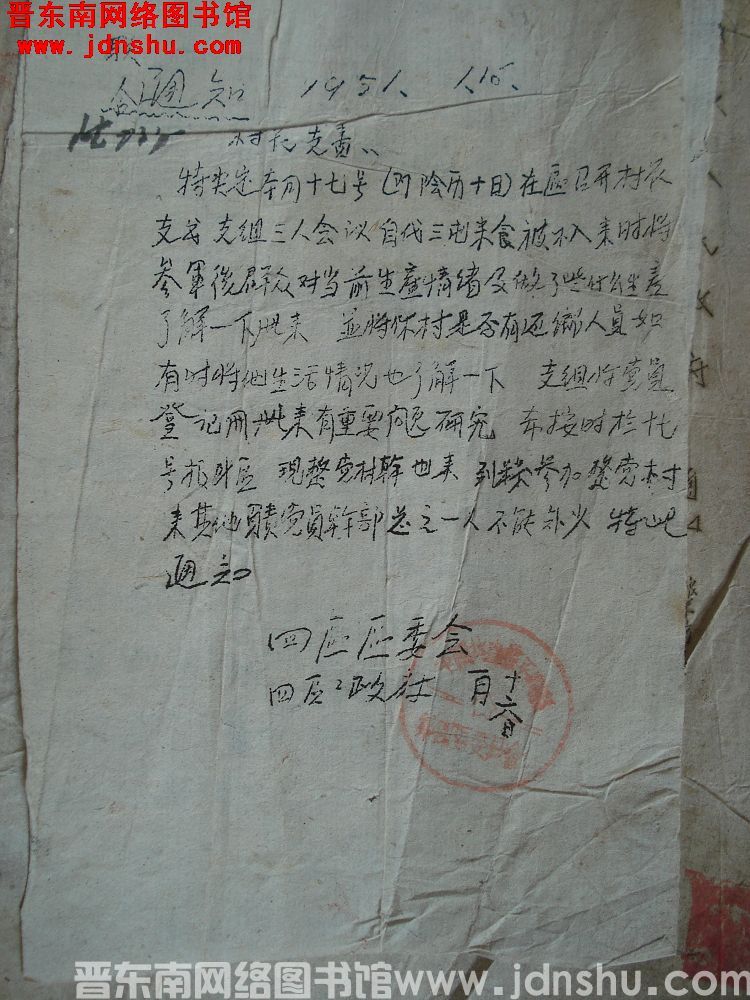 晋东南网络图书馆
www.jdnshu.com
联
合通知 1951. 1.16.
村托支责
特决定本月十七号(阴险历十日)在區召开村农
支战支组三人会议自代三屯来食被不入来时将
参軍後群众对当前生產情绪及做了些什么生產
了解一下此来 並将你村是否有还鄉人員如
有时将他生活情况也了解一下 支组将党員
登记册此来有重要问题研究 希按时於十七
号报到區 现整党村幹也来 到 参加整党村
来其他 責党員幹部总之一人不能缺少 特此
通知
四區區委会
四區政府 一月十六日
晋东南网络图书馆www.jdnshu.com